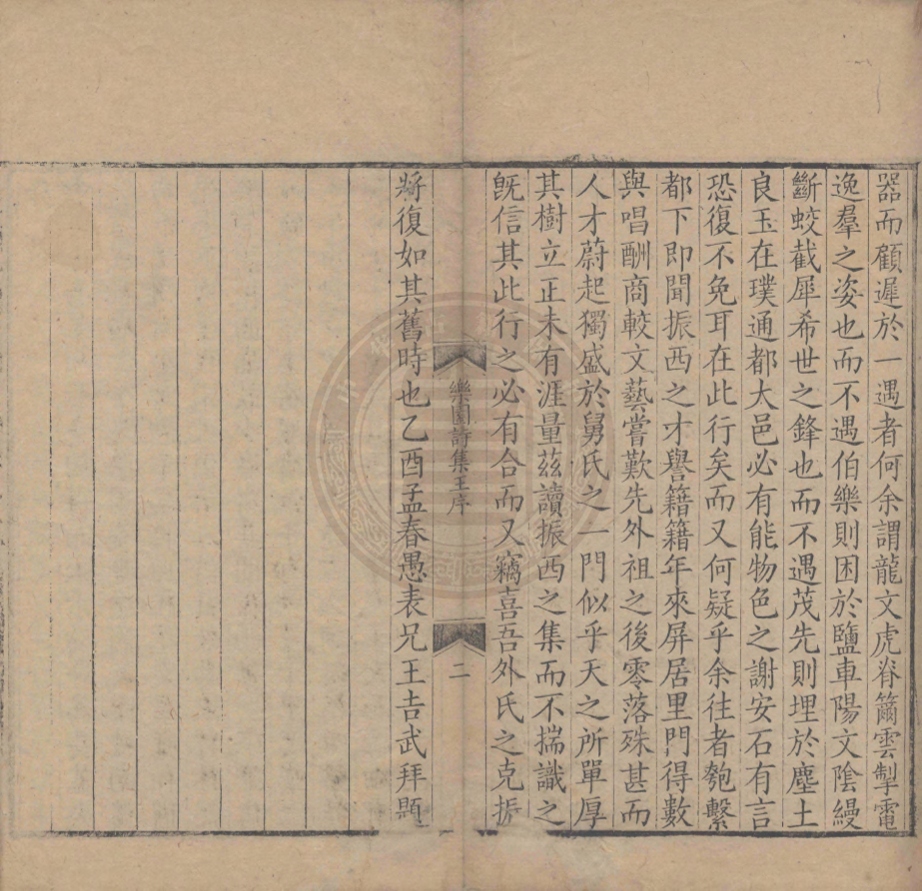 器而顧遲於一遇者何余謂龍文虎脊籋雲掣電
逸羣之姿也而不遇伯樂則困於鹽車陽文陰縵
斷蛟截犀希世之鋒也而不遇茂先則埋於塵土
良玉在璞通都大邑必有能物色之謝安石有言
恐復不免耳在此行矣而又何疑乎余往者匏繫
都下即聞振西之才譽籍籍年來屏居里門得數
與唱酬商較文藝嘗歎先外祖之後零落殊甚而
人才蔚起獨盛於舅氏之一門似乎天之所單厚
其樹立正未有涯量茲讀振西之集而不揣識之
旣信其此行之必有合而又竊喜吾外氏之克振
樂圃詩集王序
二
將復如其舊時也乙酉孟春愚表兄王吉武拜題